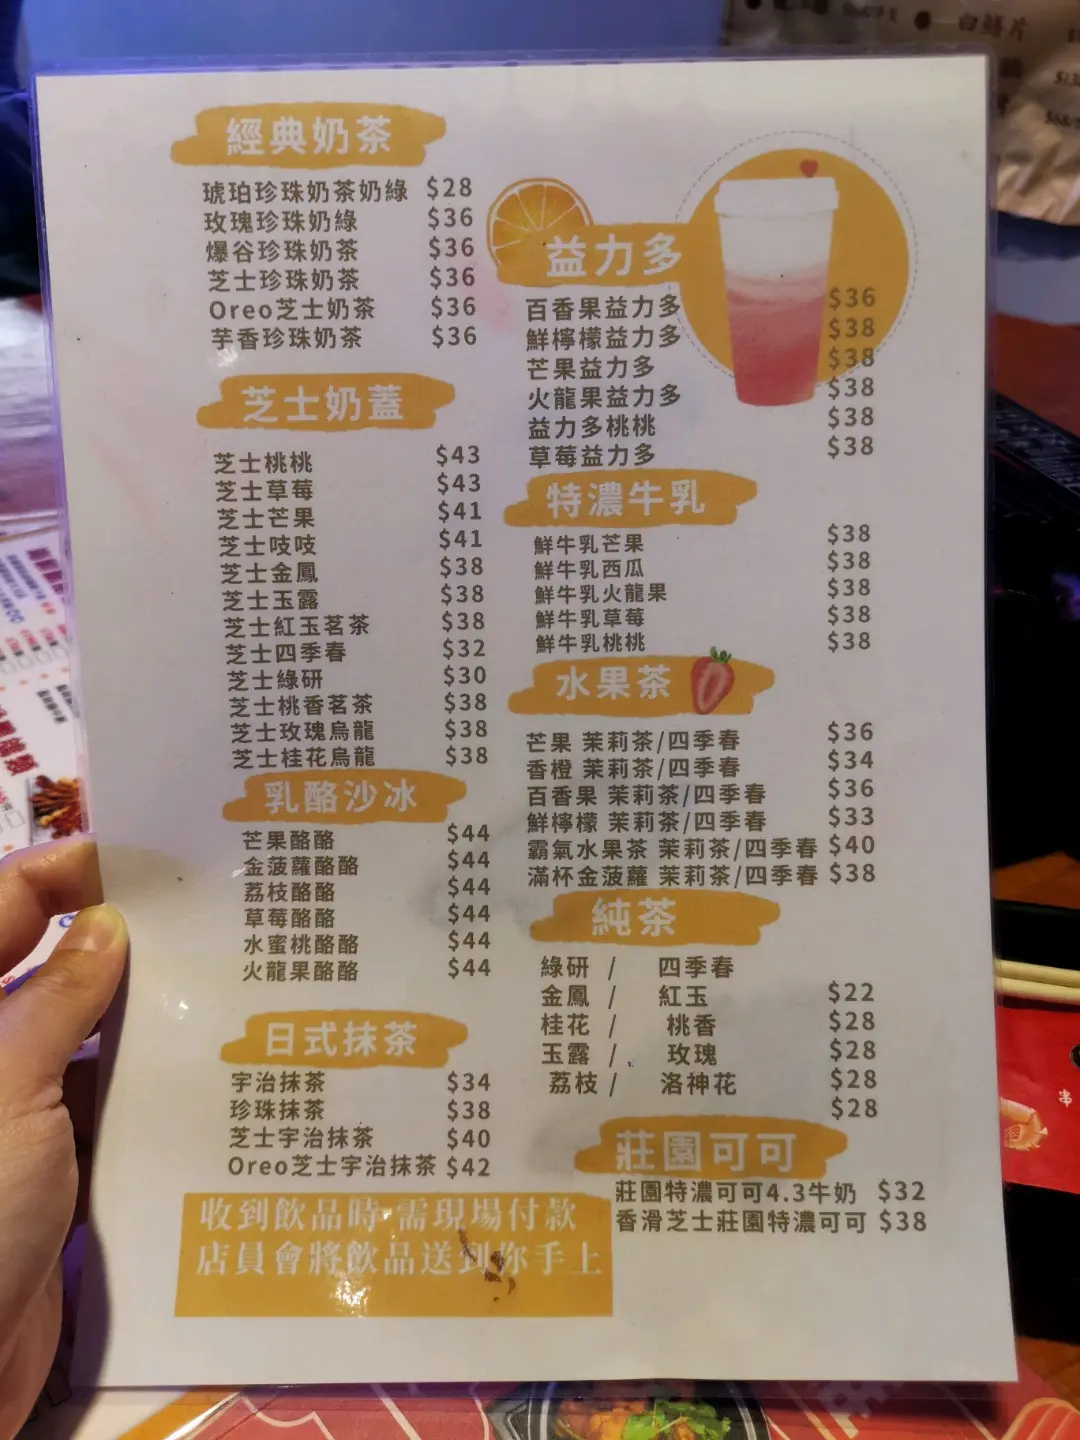 經典奶茶
琥珀珍珠奶茶奶綠 $28
玫瑰珍珠奶綠 $36
爆谷珍珠奶茶 $36
芝士珍珠奶茶 $36
Oreo芝士奶茶 $36
芋香珍珠奶茶 $36
芝士奶蓋
芝士桃桃 $43
芝士草莓 $43
芝士芒果 $41
芝士吱吱 $41
芝士金鳳 $38
芝士玉露 $38
芝士紅玉茗茶 $38
芝士四季春 $32
芝士綠研 $30
芝士桃香茗茶 $38
芝士玫瑰烏龍 $38
芝士桂花烏龍 $38
乳酪沙冰
芒果酪酪 $44
金菠蘿酪酪 $44
荔枝酪酪 $44
草莓酪酪 $44
水蜜桃酪酪 $44
火龍果酪酪 $44
日式抹茶
宇治抹茶 $34
珍珠抹茶 $38
芝士宇治抹茶 $40
Oreo芝士宇治抹茶 $42
收到飲品時 需現場付款
店員會將飲品送到你手上
益力多
百香果益力多 $36
鮮檸檬益力多 $38
芒果益力多 $38
火龍果益力多 $38
益力多桃桃 $38
草莓益力多 $38
特濃牛乳
鮮牛乳芒果 $38
鮮牛乳西瓜 $38
鮮牛乳火龍果 $38
鮮牛乳草莓 $38
鮮牛乳桃桃 $38
水果茶
芒果 茉莉茶/四季春 $36
香橙 茉莉茶/四季春 $34
百香果 茉莉茶/四季春 $36
鮮檸檬 茉莉茶/四季春 $33
霸氣水果茶 茉莉茶/四季春 $40
滿杯金菠蘿 茉莉茶/四季春 $38
純茶
綠研 / 四季春 $22
金鳳 / 紅玉 $28
桂花 / 桃香 $28
玉露 / 玫瑰 $28
荔枝 / 洛神花 $28
莊園可可
莊園特濃可可4.3牛奶 $32
香滑芝士莊園特濃可可 $38
白鱔片
串